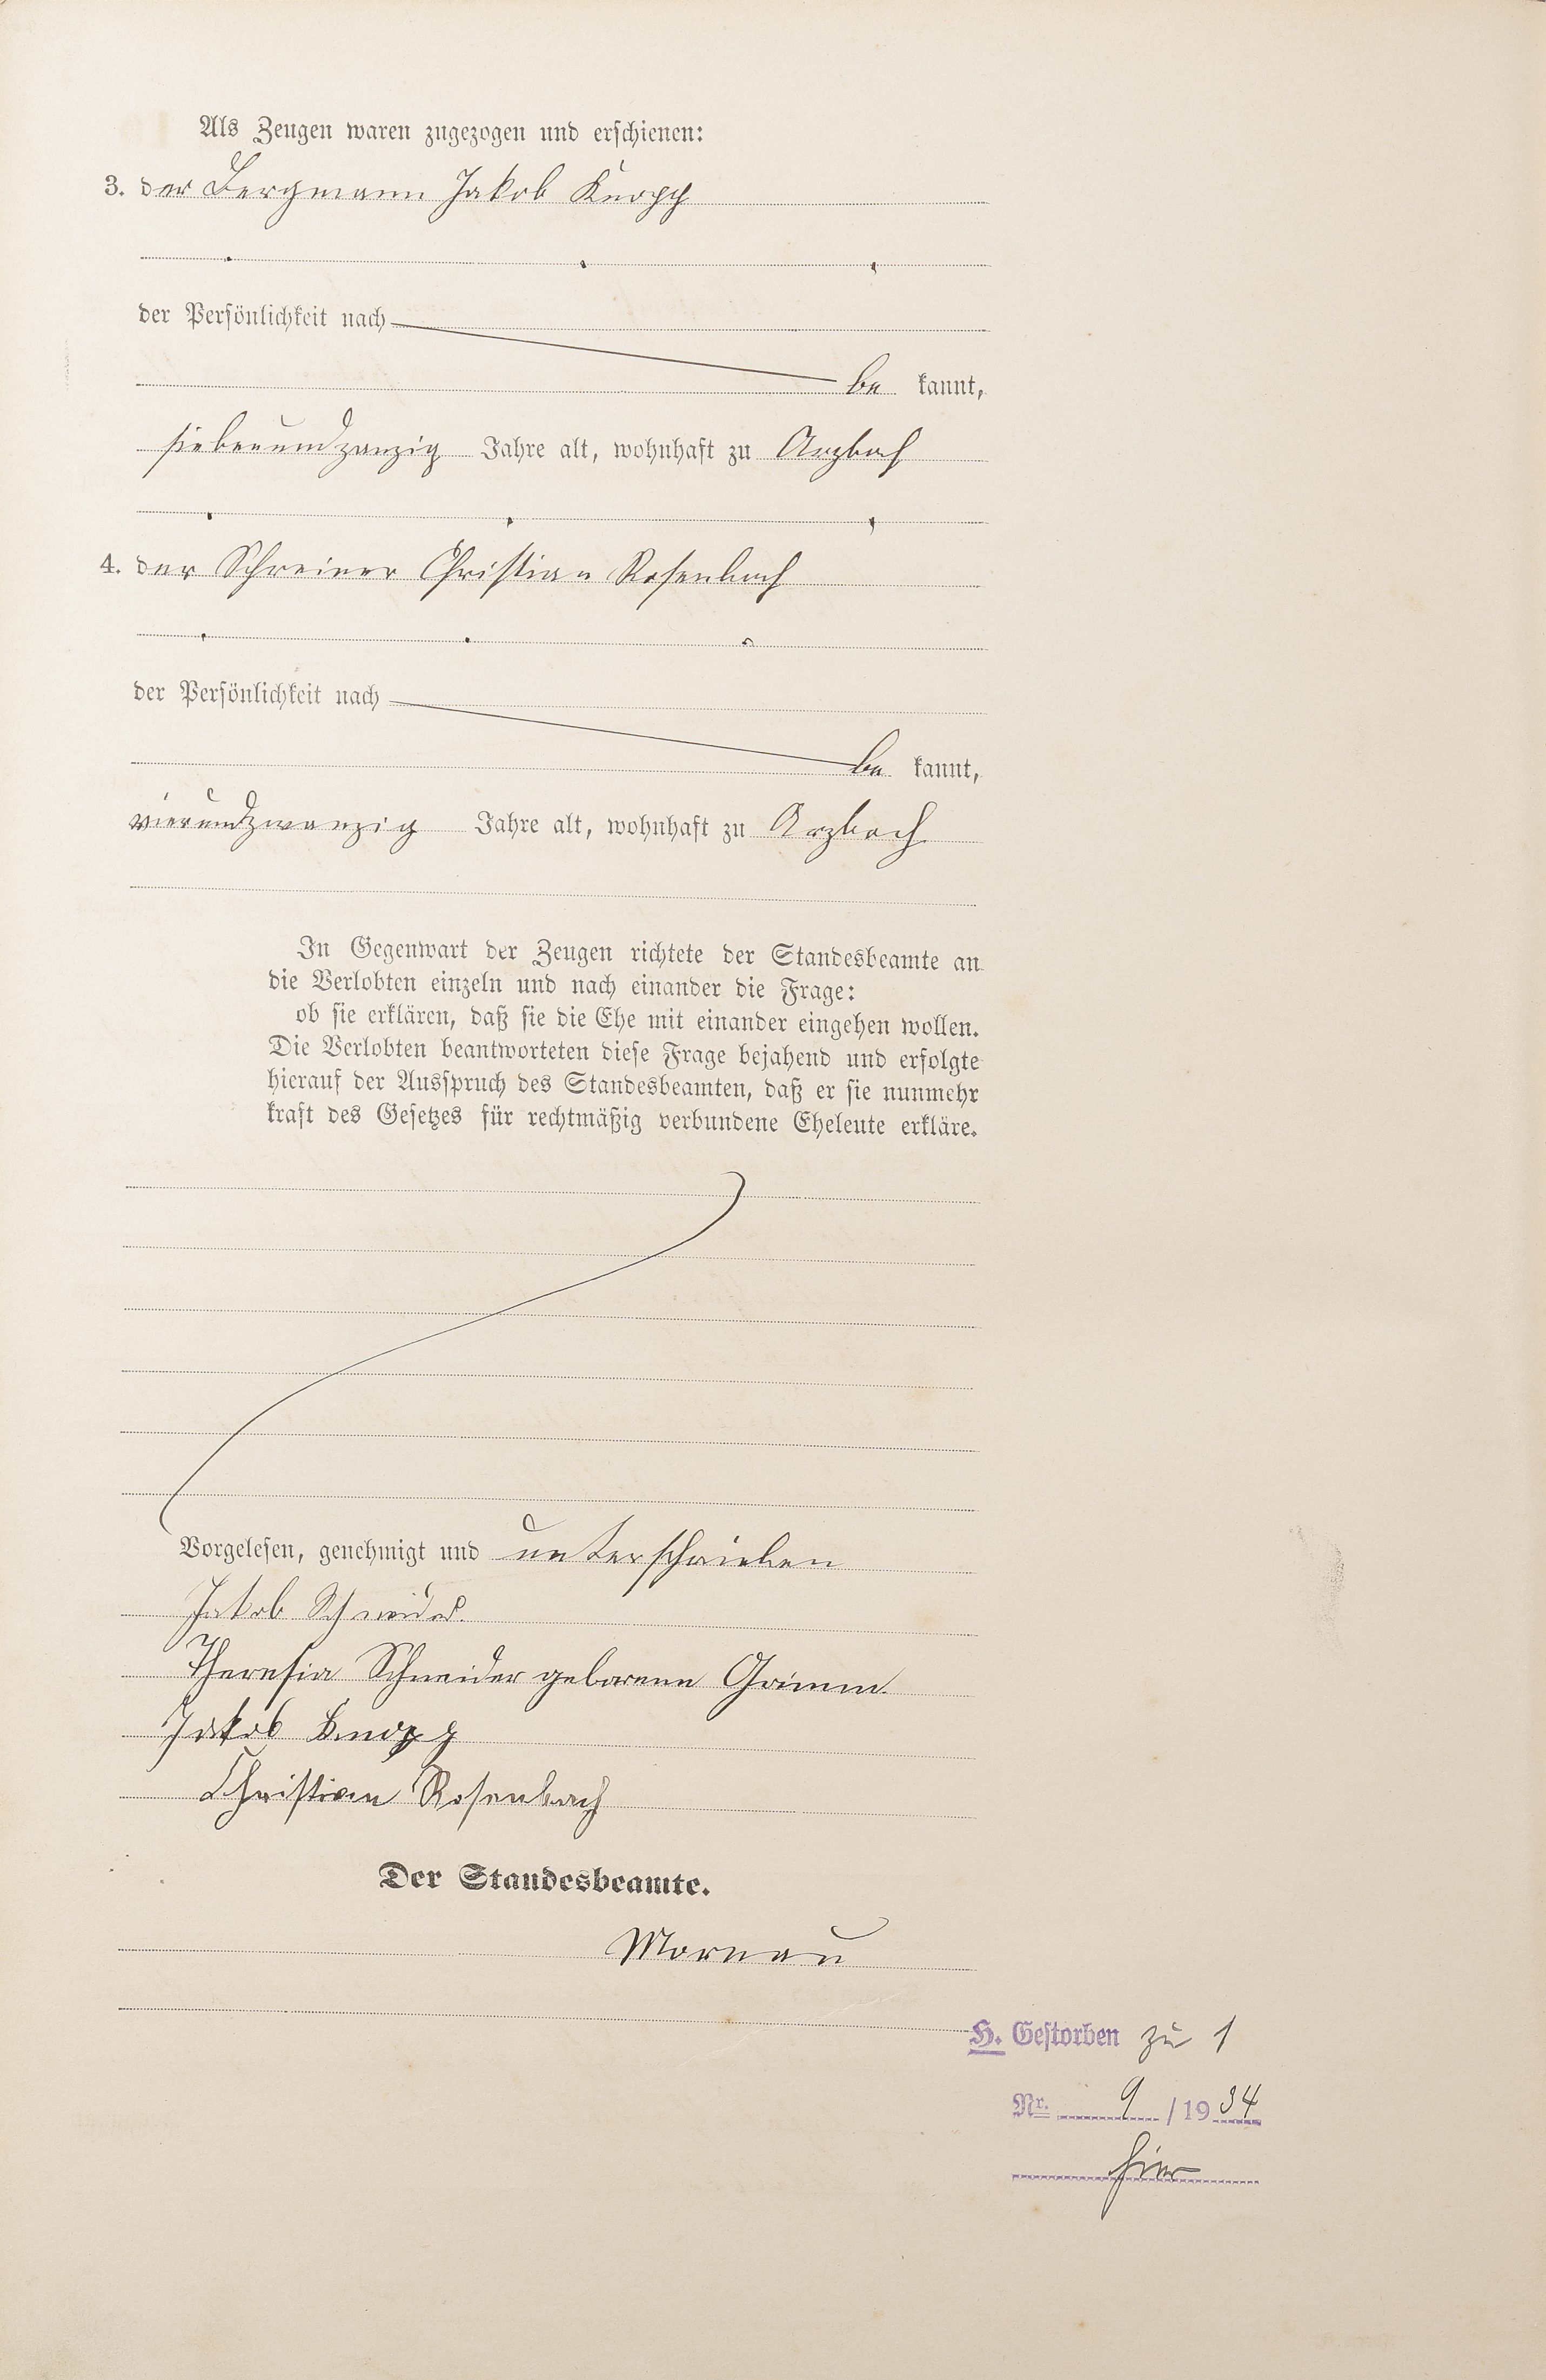 Als Zeugen waren zugezogen und erschienen:
3. der Bergmann Jakob Knopp
der Persönlichkeit nach
be kannt,
siebenundzanzig Jahre alt, wohnhaft zu Arzbach
4. der Schreiner Christian Rosenbach
der Persönlichkeit nach
be kannt,
vierundzwanzig Jahre alt, wohnhaft zu Arzbach
In Gegenwart der Zeugen richtete der Standesbeamte an
die Verlobten einzeln und nach einander die Frage:
ob sie erklären, daß sie die Ehe mit einander eingehen wollen.
Die Verlobten beantworteten diese Frage bejahend und erfolgte
hierauf der Ausspruch des Standesbeamten, daß er sie nunmehr
kraft des Gesetzes für rechtmäßig verbundene Eheleute erkläre.
Vorgelesen, genehmigt und unterschrieben
Jakob Schneider.
Theresia Schneider geborene Grimm
Jakob Knopp
Christian Rosenbach
Der Standesbeamte.
Mornau
H. Gestorben zu 1
Nr. 9 / 1934
hier